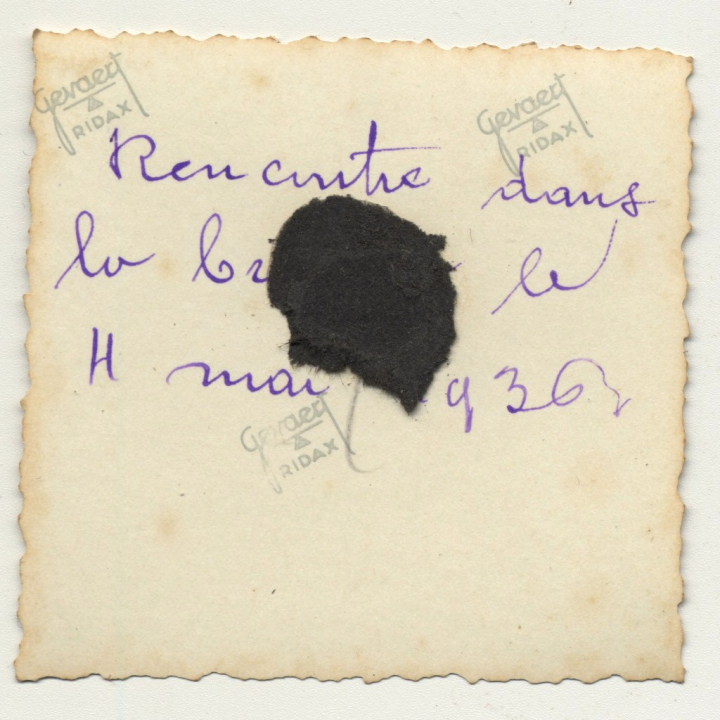 Gevaert
RIDAX
Gevaert
RIDAX
Rencontre dans
la le
mai 936
Gevaert
RIDAX